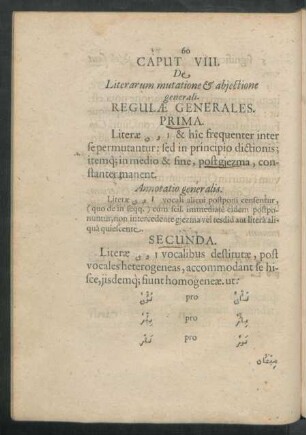 60
CAPUT VIII.
De
Literarum mutatione & abjectione
generali.
REGULÆ GENERALES.
PRIMA.
Literæ ا و ى & hîc frequenter inter
se permutantur: sed in principio dictionis;
itemq; in medio & fine, post giezma, con-
stanter manent.
Annotatio generalis.
Literæ و ى ا vocali alicui postponi censentur,
(quo de in seqq.) cum scil. immediatè eidem postpo-
nuntur, non interveniente giezma vel tesdid aut literâ ali-
quâ quiescente.
SECUNDA.
Literæ ا و ى vocalibus destitutæ, post
vocales heterogeneas, accommodant se hi-
sce, iisdemq; fiunt homogeneæ. ut:
pro
pro
pro